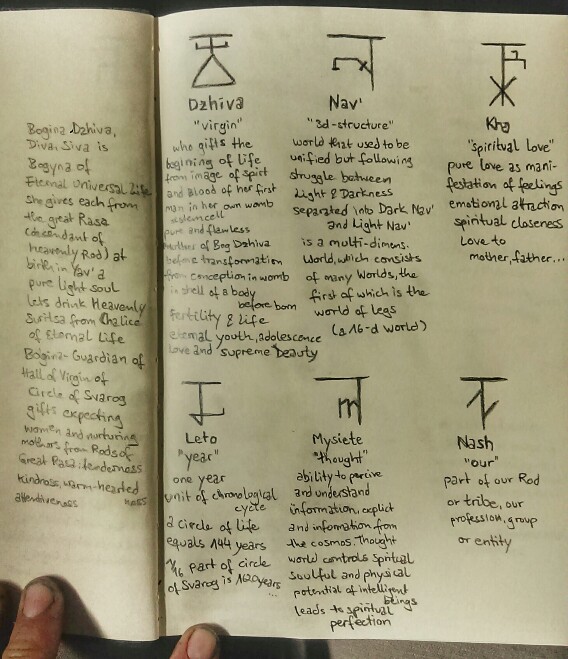 Bogina Dzhiva,
Diva, Siva is
Bogyna of
Eternal Universal Life
She gives each from
the great Rasa
(decendant of
heavenly Rod) at
birth in Yav' a
pure light soul
lets drink Heavenly
Suritsa from Chalice
of Eternal Life
Bogina-Guardian of
Hall of Virgin of
Circle of Svarog
gifts expecting
women and nurturing
mothers from Rods of
Great Rasa: tenderness
kindness, warm-hearted
ness
attentiveness
Dzhiva
"virgin"
who gifts the
beginning of life
from image of spirt
and Blood of her first
man in her own womb
stemcell
pure and flawless
Mothers of Bog Dzhiva
before transformation
from conception in womb
in shell of a body
before born
Fertility & Life
eternal youth, adolesonce
Love and supreme beauty
Nav'
"3d-structure"
world that used to be
unified but following
struggle between
Light & Darkness
separated into Dark Nav'
and Light Nav'
is a multi-dimens.
World, which consists
of many Worlds, the
first of which is the
world of Legs
(a 16-d world)
Kha
"spiritual love"
pure love as mani-
festation of feelings
emotional attraction
spiritual closeness
Love to
mother, father...
Leto
"year"
one year
unit of chronological
cycle
a Circle of life
equals 144 years
1/16 part of circle
of Svarog is 1620 years
...
Mysiete
"thought"
ability to percive
and understand
information, explict
and infomation from
the cosmos. Thought
world controls Spiritual
Soulful and physical
potential of intelligent
beings
leads to spiritual
perfection
Nash
"our"
part of our Rod
or tribe, our
profession, group
or entity